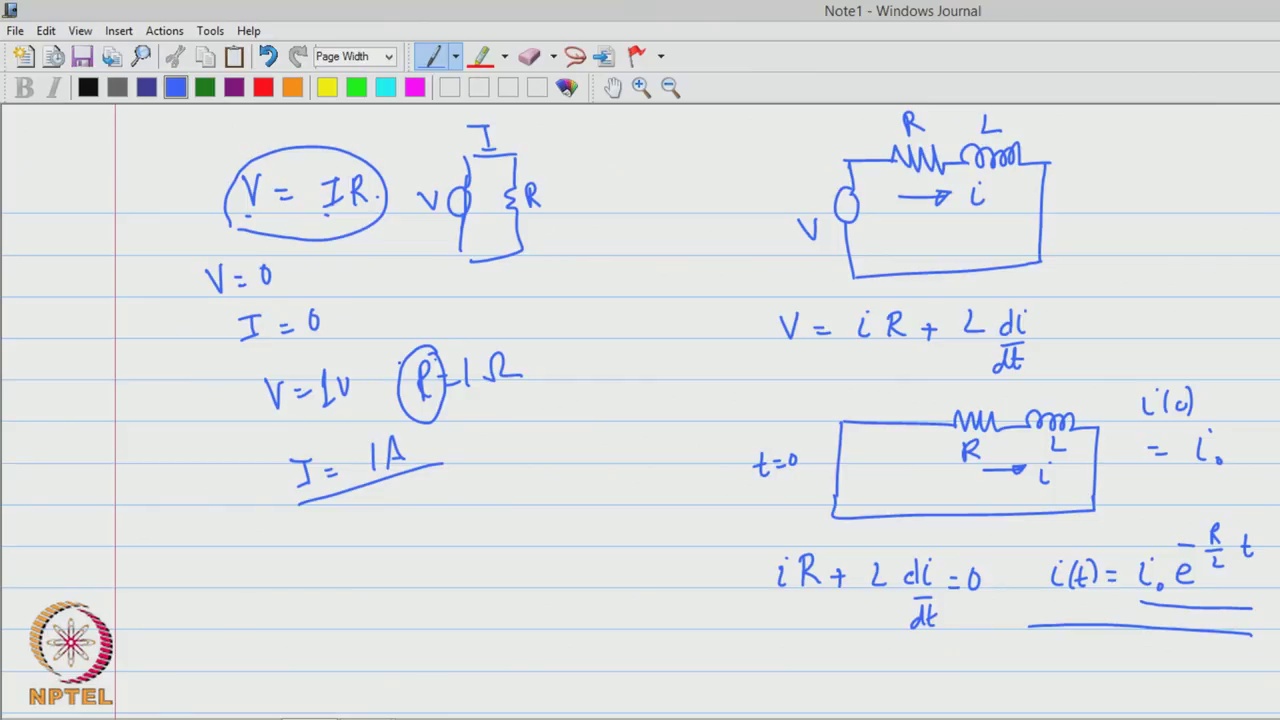 Note1 - Windows Journal
File Edit View Insert Actions Tools Help
Page Width
B I
V = IR.
I
V R
V = 0
I = 0
V = 1V R = 1 Ω
I = 1A
R L
i
V
V = iR + L di/dt
i(0)
= i₀
t=0
R L
i
iR + L di/dt = 0 i(t) = i₀ e^(-R/L t)
NPTEL